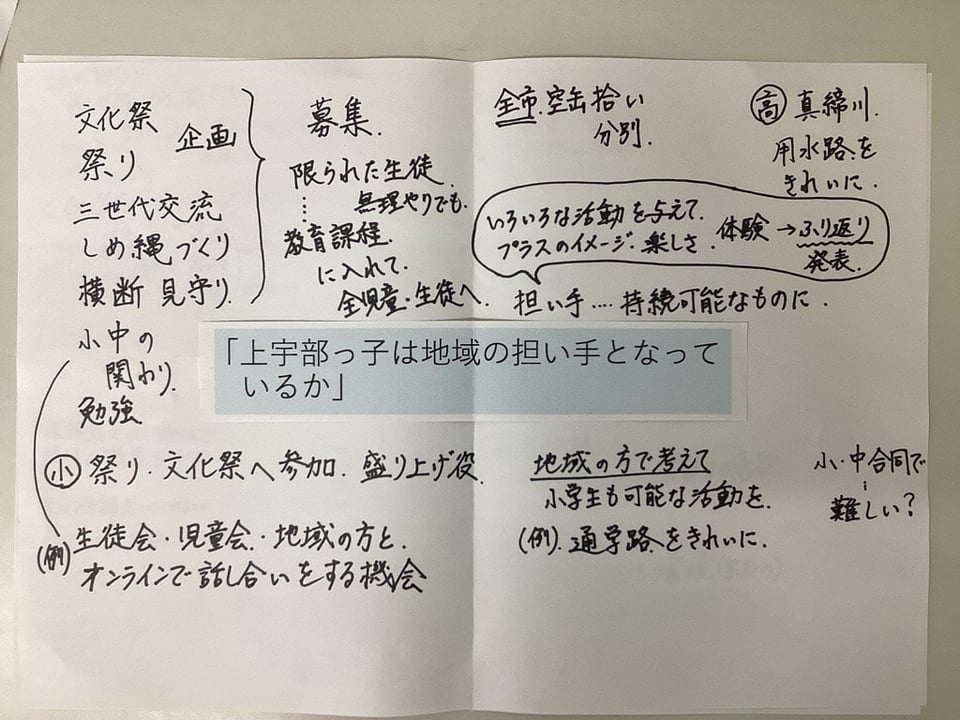 文化祭
祭り
企画
三世代交流
しめ縄づくり
横断見守り.
小中の
関わり.
勉強
募集.
限られた生徒.
無理やりでも.
教育課程.
に入れて.
全児童・生徒へ.
全市.空缶拾い
分別.
高 真締川.
用水路を
きれいに.
いろいろな活動を与えて.
プラスのイメージ.楽しさ.
体験→ふり返り
発表.
担い手....持続可能なものに.
「上宇部っ子は地域の担い手となって
いるか」
小 祭り.文化祭へ参加.盛り上げ役.
(例) 生徒会・児童会・地域の方と.
オンラインで話し合いをする機会
地域の方で考えて
小学生も可能な活動を.
(例).通学路をきれいに.
小・中合同で
難しい?